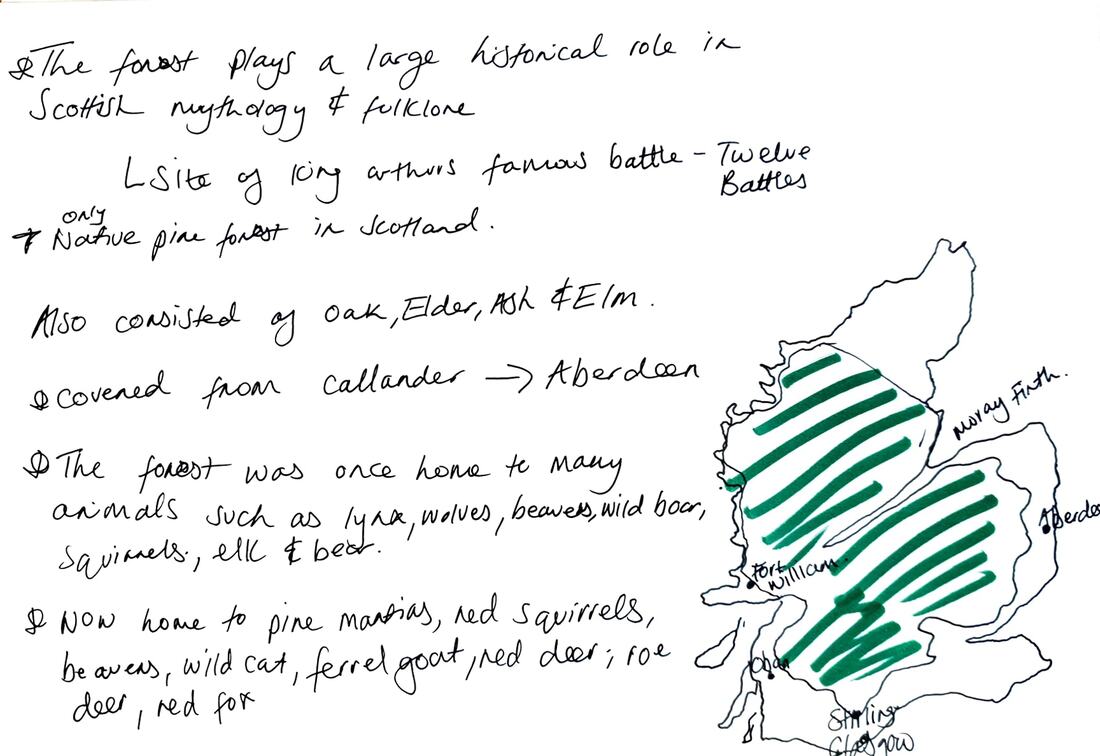 The forest plays a large historical role in
Scottish mythology & folklore
Site of king arthurs famous battle - Twelve
Battles
only
Native pine forest in Scotland.
Also consisted of Oak, Elder, Ash & Elm.
Covered from Callander → Aberdeen
The forest was once home to many
animals such as lynx, wolves, beavers, wild boar,
squirrels, elk & bear.
Now home to pine martins, red squirrels,
beavers, wild cat, ferrel goat, red deer, roe
deer, red fox
Moray Firth.
Aberdee
Fort
William.
Oban
Stirling
Glasgow